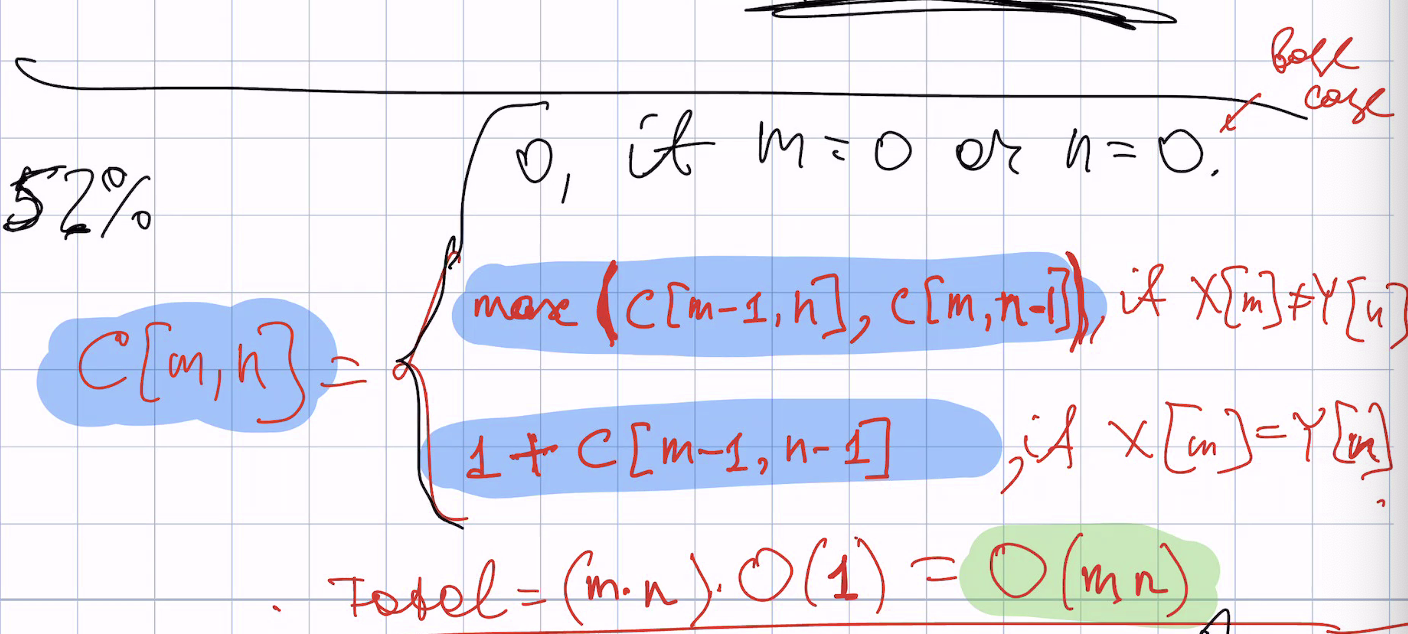 Base
case
0, if m=0 or n=0.
52%
max (C[m-1,n], C[m,n-1]), if X[m]≠Y[n]
C[m,n]=
1 + C[m-1,n-1] , if X[m]=Y[n].
Total = (m·n)·O(1) = O(mn)